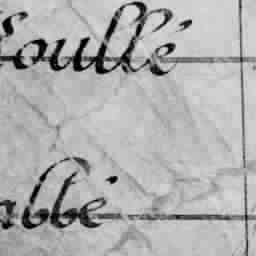 Foullé
abbé